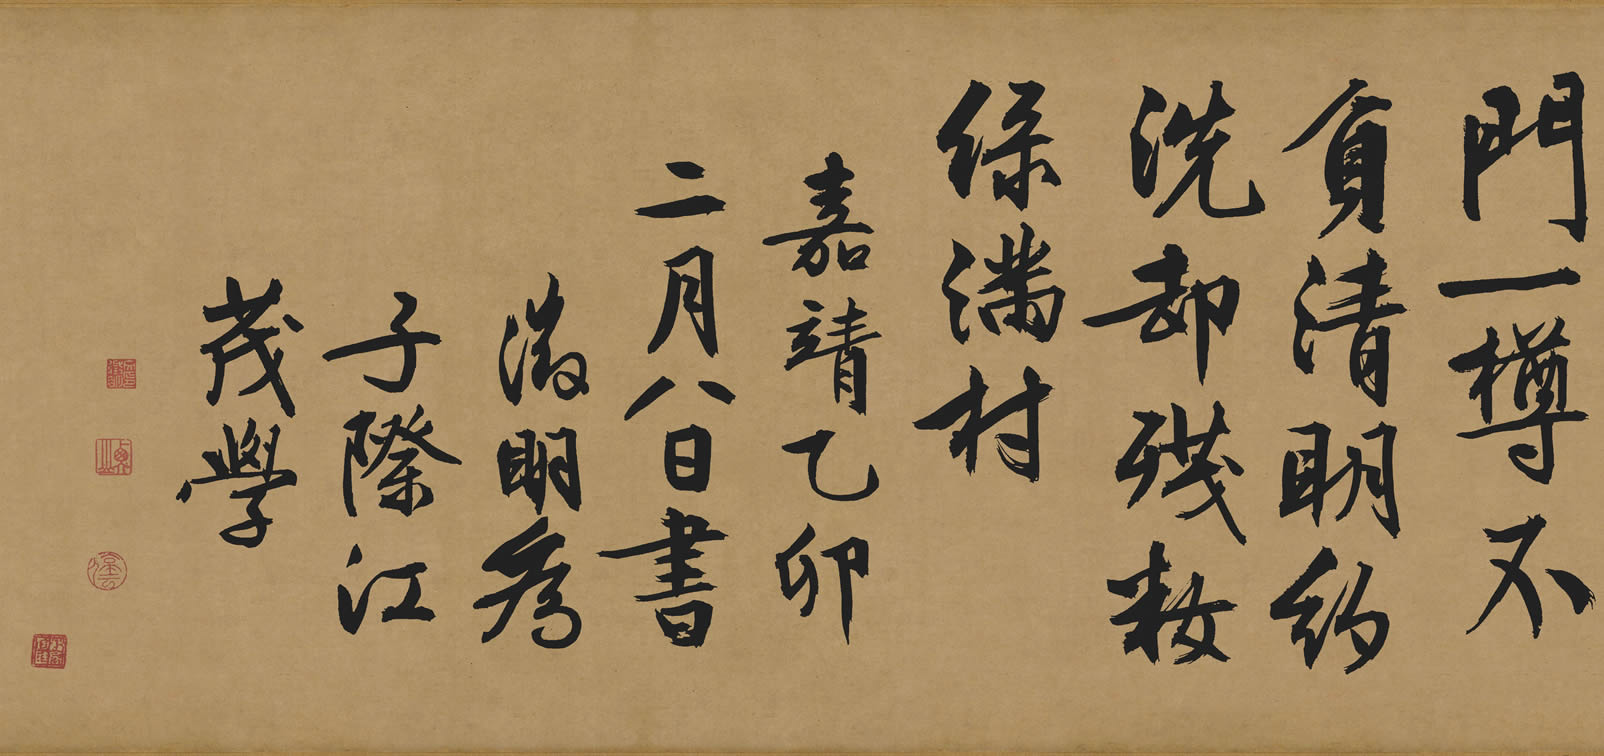 門一樽不
負清明約
洗却殘妝
綠滿村
嘉靖乙卯
二月八日書
徵明為
子際江
茂學